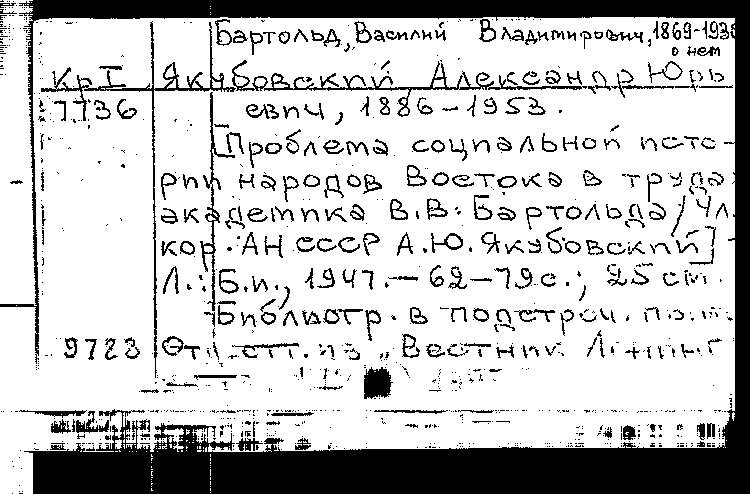 Бартольд, Василий Владимирович, 1869-1930
о нем
Кр I Якубовский, Александр Юрь
7736 евич, 1886-1953.
[Проблема социальной исто-
рии народов Востока в трудах
академика В.В. Бартольда / Чл.
кор. АН СССР А.Ю. Якубовский] -
Л.: Б.и., 1947. - 62-79 с.; 25 см.
Библиогр. в подстроч. прим.
9728 Отд. отт. из „Вестник Ленинг